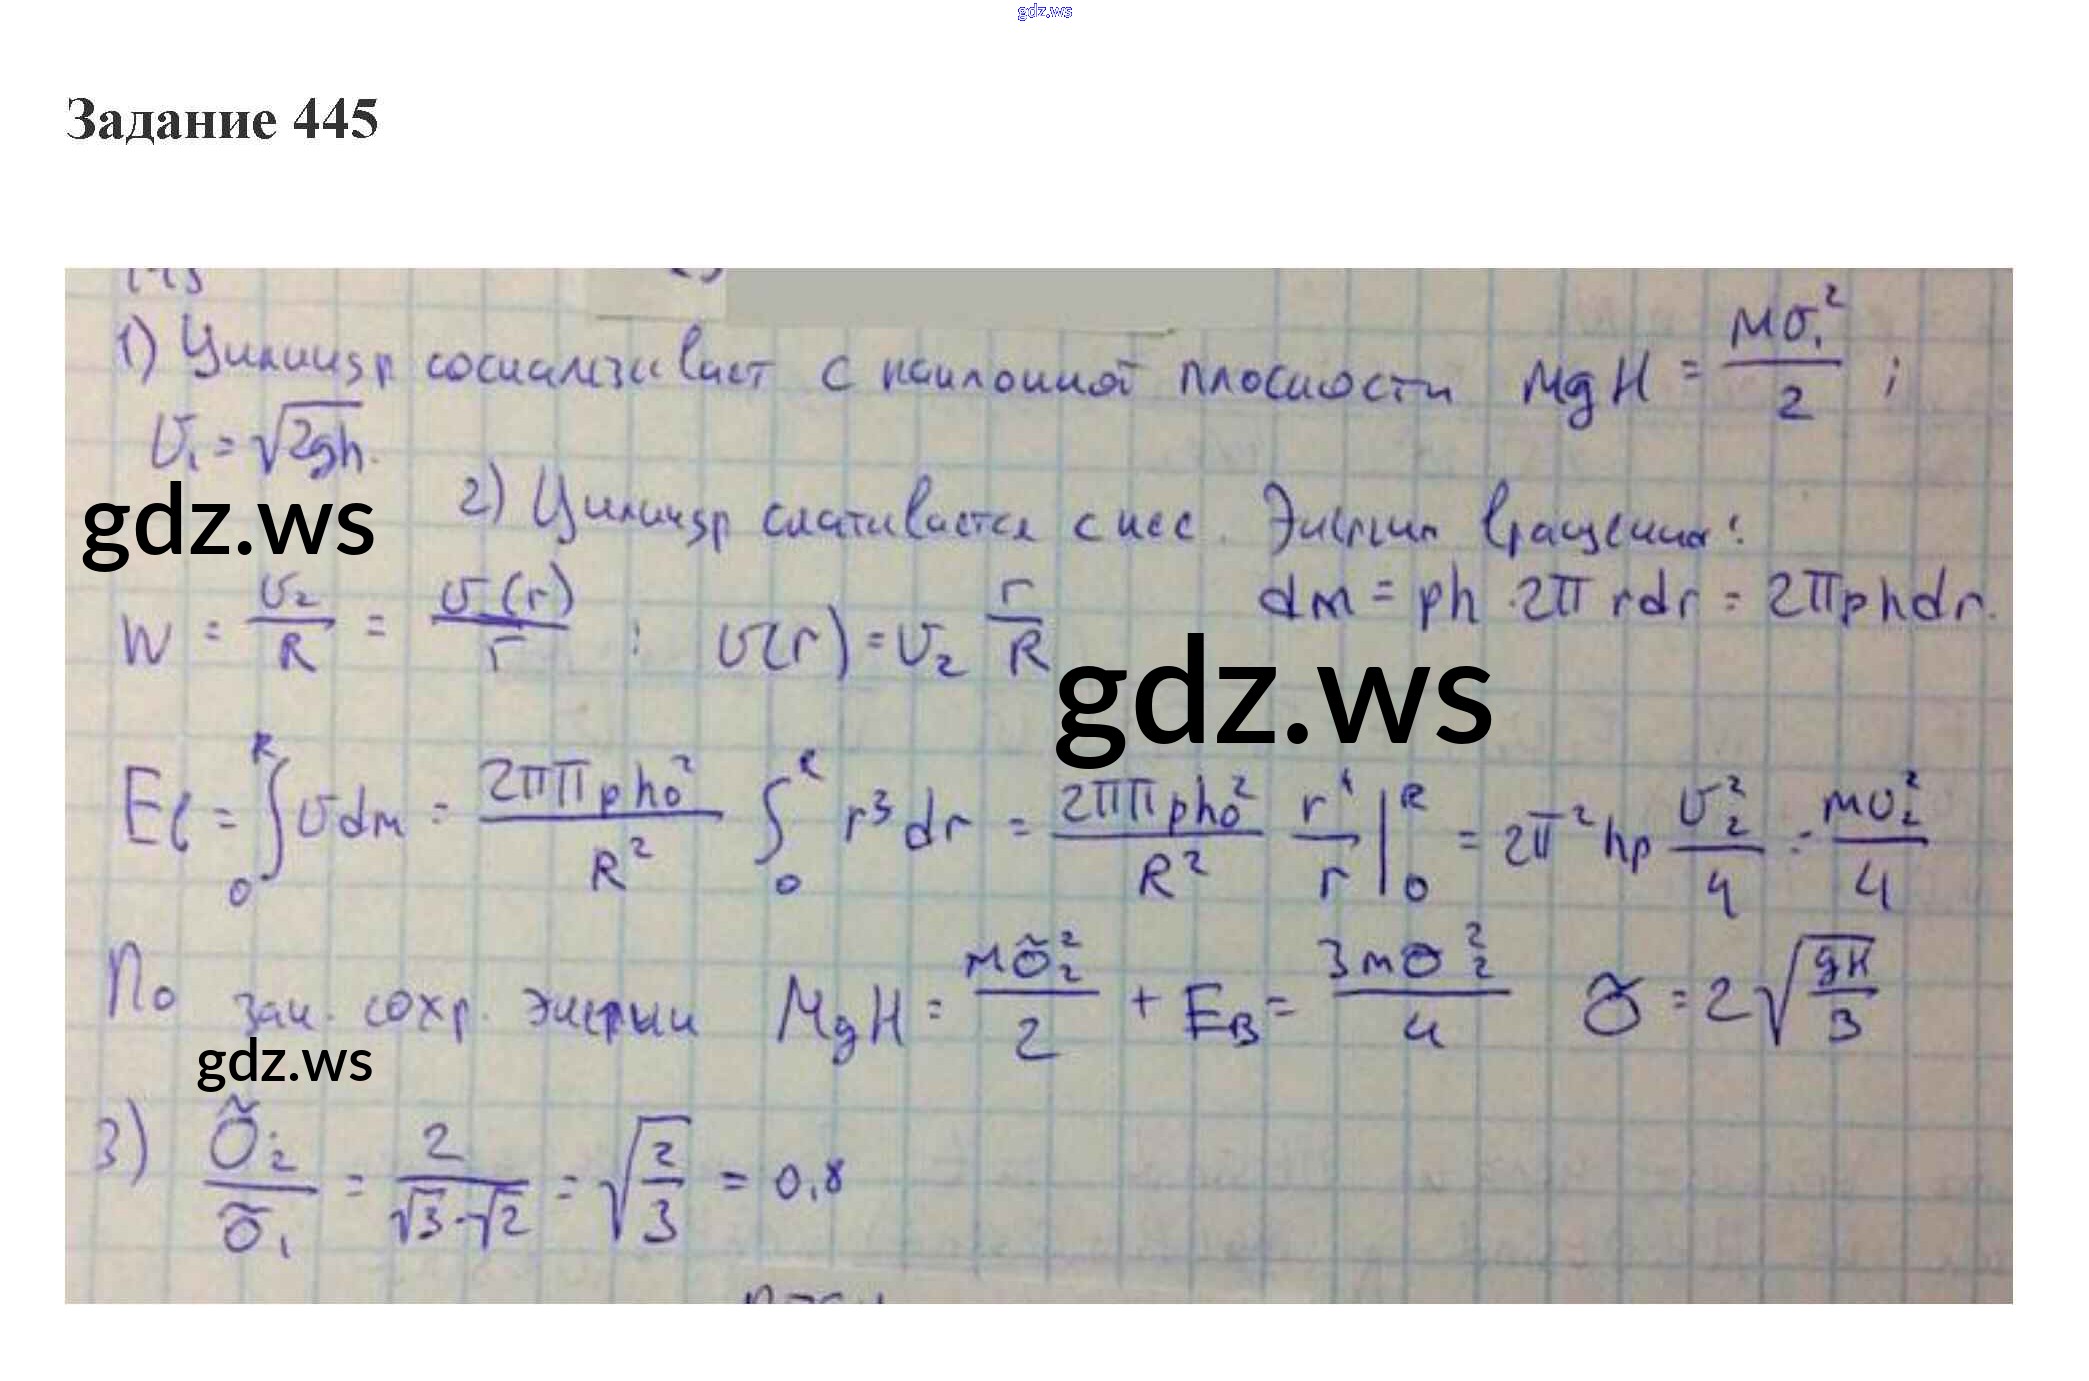 gdz.ws
Задание 445
1) Цилиндр соскальзывает с наклонной плоскости MgH = mv₁²/2 ;
v₁ = √2gh.
gdz.ws
2) Цилиндр скатывается с нее. Энергия вращения:
W = v₂/R = v(r)/r ; v(r) = v₂ r/R dm = ρh · 2π rdr = 2πρhdr.
gdz.ws
Eℓ = ∫₀ᴿ vdm = 2ππρhv²/R² ∫₀ᴿ r³dr = 2ππρhv²/R² r⁴/r |₀ᴿ = 2π²hρ v₂²/4 = mv₂²/4
По зак. сохр. энергии MgH = mṽ₂²/2 + Eв = 3mv₂²/4 ṽ = 2√gH/3
gdz.ws
3) ṽ₂/ṽ₁ = 2/√3·√2 = √2/3 = 0,8